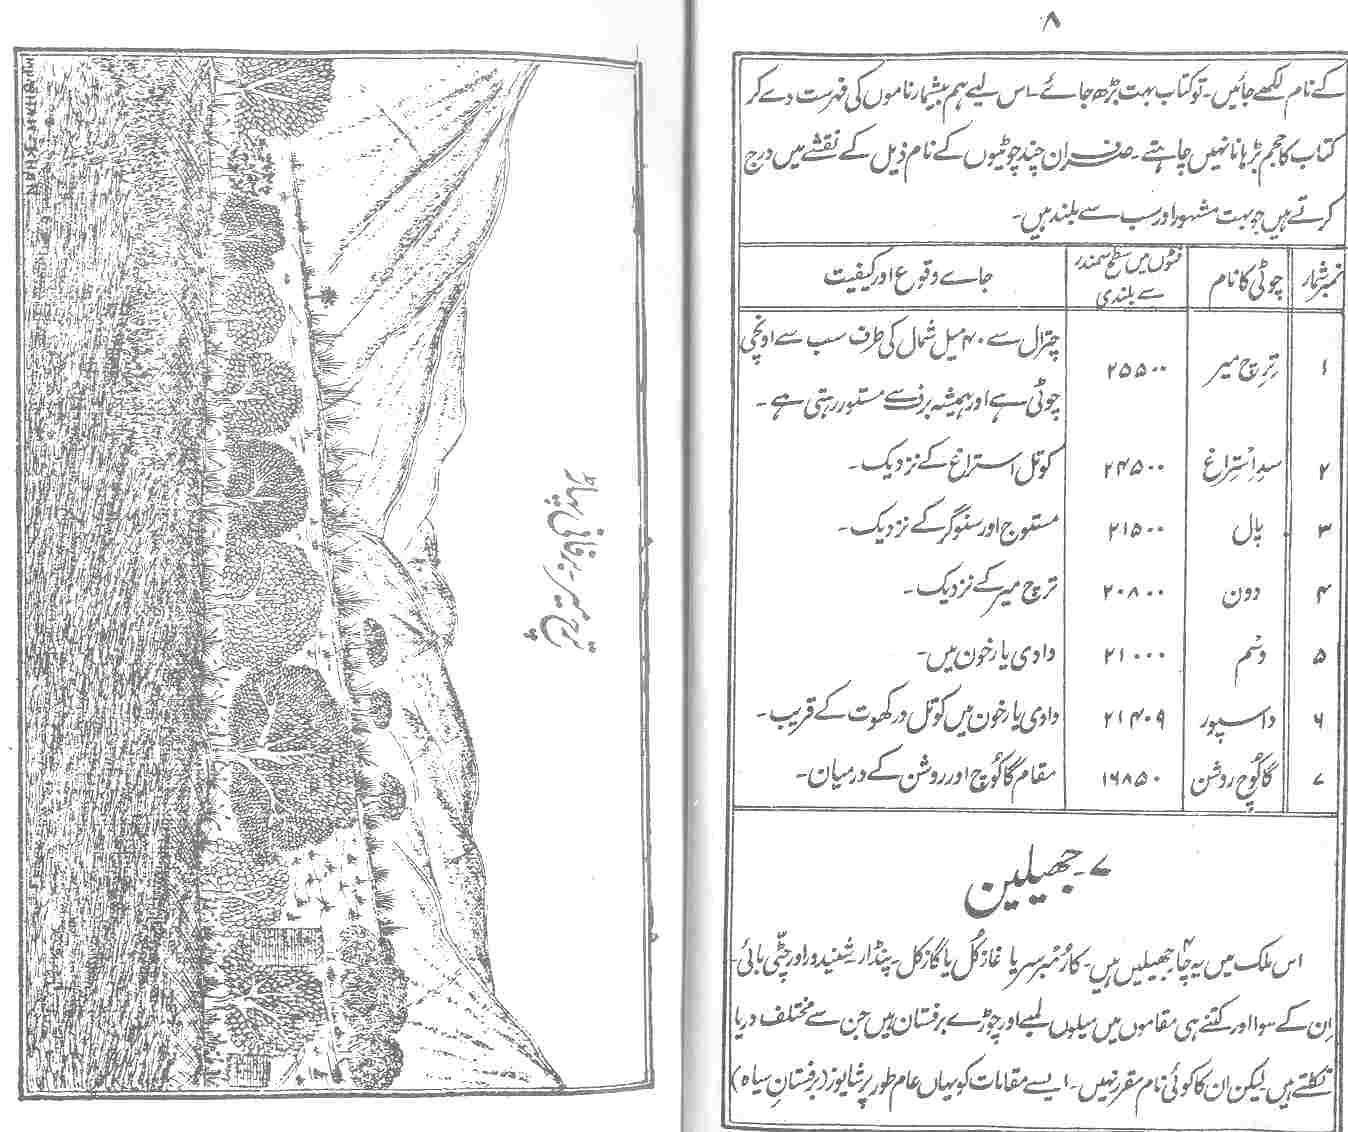 ۸
کے نام لکھے جائیں۔ تو کتاب بہت بڑھ جائے۔ اس لیے ہم بیشمار ناموں کی فہرست دے کر
کتاب کا حجم بڑھانا نہیں چاہتے۔ صرف ان چند چوٹیوں کے نام ذیل کے نقشے میں درج
کرتے ہیں جو بہت مشہور اور سب سے بلند ہیں۔
نمبر شمار چوٹی کا نام فٹوں میں سطح سمندر سے بلندی جاے وقوع اور کیفیت
۱ ترچ میر ۲۵۵۰۰ چترال سے ۴۰ میل شمال کی طرف سب سے اونچی
چوٹی ہے اور ہمیشہ برف سے مستور رہتی ہے۔
۲ سد اِستراغ ۲۴۵۰۰ کوتل استراغ کے نزدیک۔
۳ پال ۲۱۵۰۰ مستوج اور سنوگر کے نزدیک۔
۴ دون ۲۰۸۰۰ ترچ میر کے نزدیک۔
۵ ۲۱۰۰۰ وادی یارخون میں۔
۶ داسپور ۲۱۴۰۹ وادی یارخون میں کوتل درکھوت کے قریب۔
۷ گاکُوچ روشن ۱۶۸۵۰ مقام گاکُوچ اور روشن کے درمیان۔
۷۔ جھیلین
اس ملک میں یہ چار جھیلیں ہیں۔ کارُمبر سر یا غاز کُل یا گازکل۔ پنڈار۔ شنیدور اور چٹّی بائی۔
اِن کے سوا اور کتنے ہی مقاموں میں میلوں لمبے اور چوڑے برفستان ہیں جن سے مختلف دریا
نکلتے ہیں۔ لیکن ان کا کوئی نام مقرر نہیں۔ ایسے مقامات کو یہاں عام طور پر شایوز (برفستانِ سیاہ)
ترچ میر۔ برفانی پہاڑ